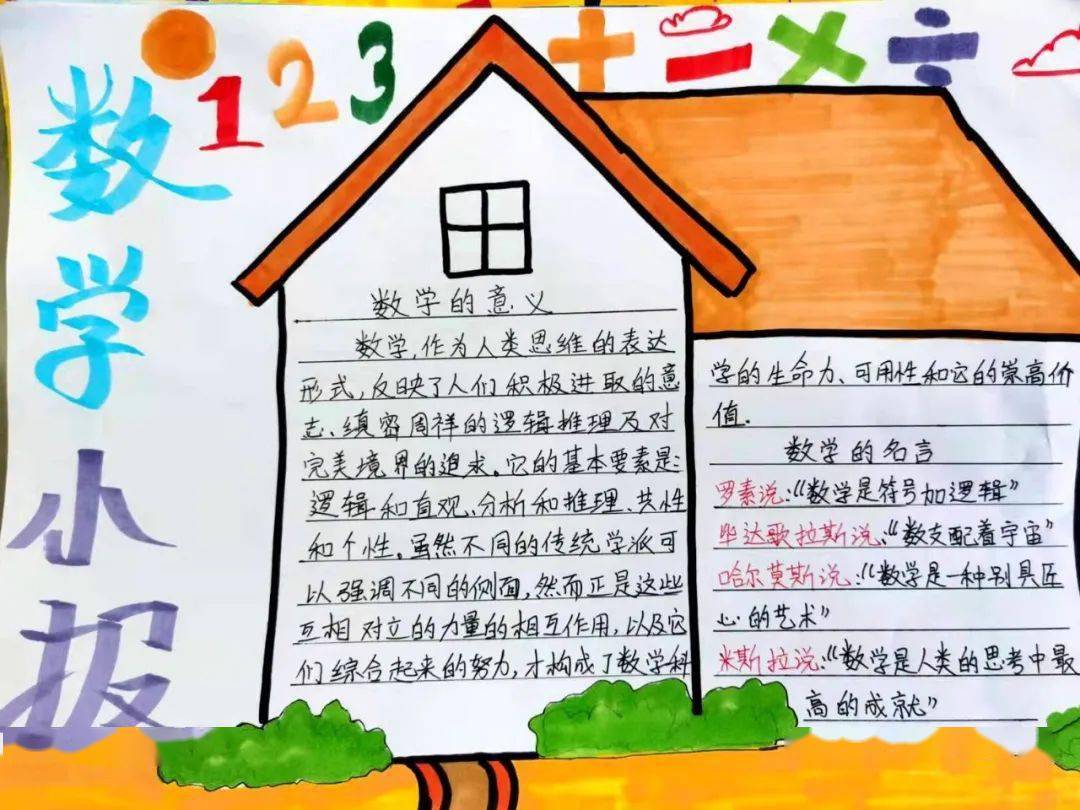 数学小报
1 2 3 + - × ÷
数学的意义
数学,作为人类思维的表达
形式,反映了人们积极进取的意
志、缜密周祥的逻辑推理及对
完美境界的追求。它的基本要素是:
逻辑和直观、分析和推理、共性
和个性。虽然不同的传统学派可
以强调不同的侧面,然而正是这些
互相对立的力量的相互作用,以及它
们综合起来的努力,才构成了数学科
学的生命力、可用性和它的崇高价
值.
数学的名言
罗素说:“数学是符号加逻辑”
毕达歌拉斯说:“数支配着宇宙”
哈尔莫斯说:“数学是一种别具匠
心的艺术”
米斯拉说:“数学是人类的思考中最
高的成就”